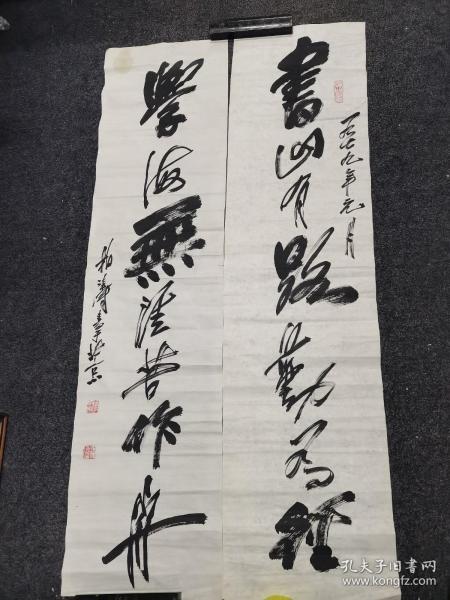 書山有路勤為徑
一九七九年元月
學海無涯苦作舟
孔夫子旧书网
www.kongfz.com